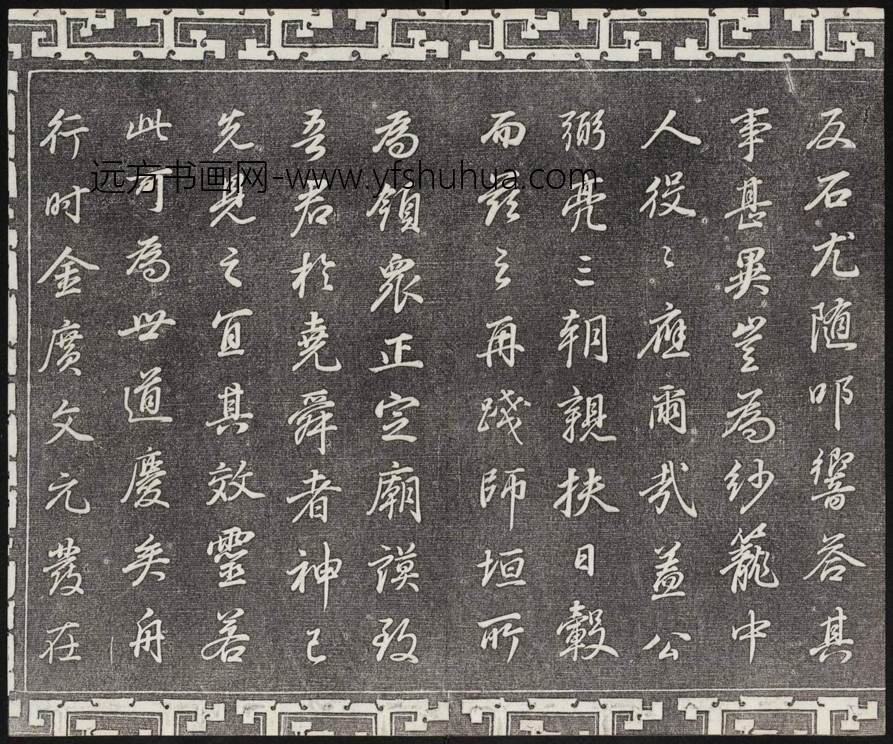 反石尤随叩響荅其
事甚異豈為紗籠中
人役〻應爾哉蓋公
弼亮三朝親扶日轂
而之再踐師垣所
為領衆正定廟謨致
吾君於堯舜者神已
先見之宜其效靈若
此可為世道慶矣舟
行时金廣文元發在
远方书画网-www.yfshuhua.com